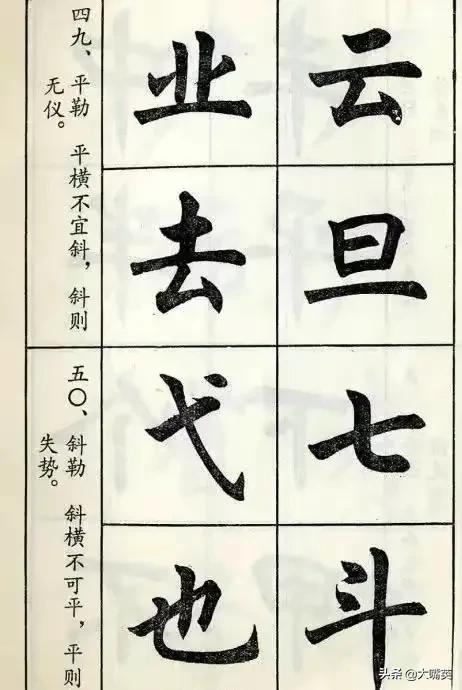 云
旦
七
斗
业
去
弋
也
四九、平勒 平横不宜斜，斜则
无仪。
五〇、斜勒 斜横不可平，平则
失势。
头条 @大嘴葵